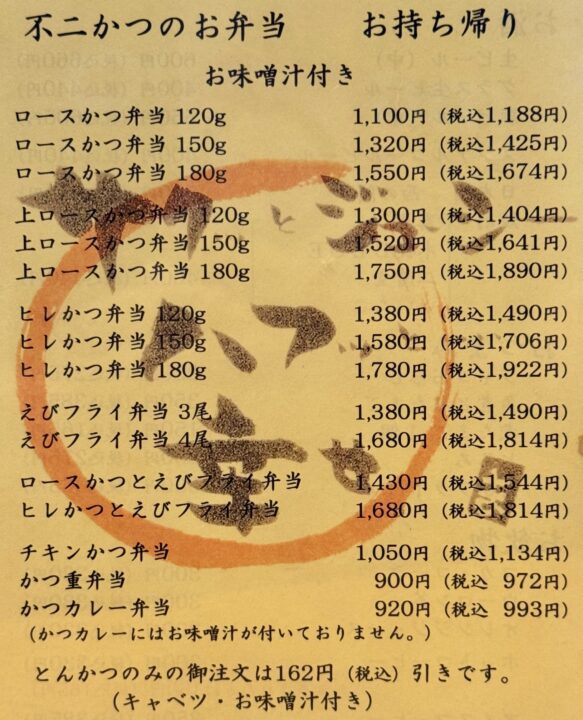 不二かつのお弁当　お持ち帰り
お味噌汁付き
ロースかつ弁当 120g　1,100円（税込1,188円）
ロースかつ弁当 150g　1,320円（税込1,425円）
ロースかつ弁当 180g　1,550円（税込1,674円）
上ロースかつ弁当 120g　1,300円（税込1,404円）
上ロースかつ弁当 150g　1,520円（税込1,641円）
上ロースかつ弁当 180g　1,750円（税込1,890円）
ヒレかつ弁当 120g　1,380円（税込1,490円）
ヒレかつ弁当 150g　1,580円（税込1,706円）
ヒレかつ弁当 180g　1,780円（税込1,922円）
えびフライ弁当 3尾　1,380円（税込1,490円）
えびフライ弁当 4尾　1,680円（税込1,814円）
ロースかつとえびフライ弁当　1,430円（税込1,544円）
ヒレかつとえびフライ弁当　1,680円（税込1,814円）
チキンかつ弁当　1,050円（税込1,134円）
かつ重弁当　900円（税込 972円）
かつカレー弁当　920円（税込 993円）
（かつカレーにはお味噌汁が付いておりません。）
とんかつのみの御注文は162円（税込）引きです。
（キャベツ・お味噌汁付き）
サクッとジューシー
ハフッと
幸せ